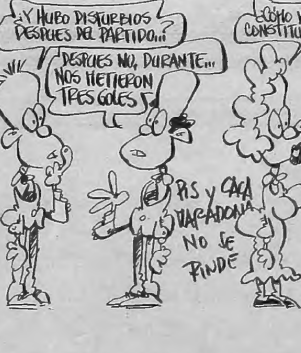 ¿Y HUBO DISTURBIOS
DESPUES DEL PARTIDO...?
DESPUES NO, DURANTE...
NOS METIERON
TRES GOLES
¿COMO
CONSTITU
PIS Y CACA
MARADONA
NO SE
RINDE